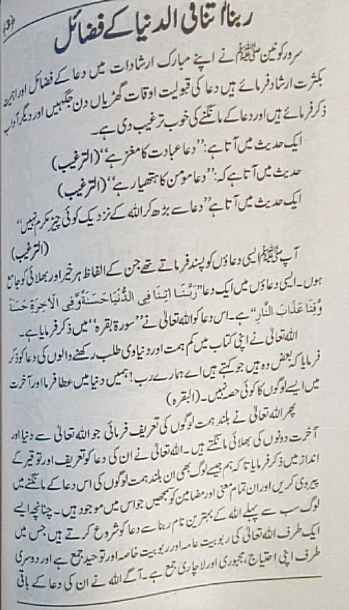 ربنا اٰتنا فی الدنیا کے فضائل
سرور کونین ﷺ نے اپنے مبارک ارشادات میں دعا کے فضائل اور اہمیت
بکثرت ارشاد فرمائے ہیں دعا کی قبولیت اوقات گھڑیاں دن جگہیں اور دیگر آداب
ذکر فرمائے ہیں اور دعا کے مانگنے کی خوب ترغیب دی ہے۔
ایک حدیث میں آتا ہے: ”دعا عبادت کا مغز ہے“ (الترغیب)
حدیث میں آتا ہے کہ: ”دعا مومن کا ہتھیار ہے“ (الترغیب)
ایک حدیث میں آتا ہے ”دعا سے بڑھ کر اللہ کے نزدیک کوئی چیز مکرم نہیں“
(الترغیب)
آپ ﷺ ایسی دعاؤں کو پسند فرماتے تھے جن کے الفاظ ہر خیر اور بھلائی کو جامع
ہوں۔ ایسی دعاؤں میں ایک دعا ”رَبَّنَا اٰتِنَا فِی الدُّنْیَا حَسَنَةً وَّفِی الْاٰخِرَةِ حَسَنَةً
وَّقِنَا عَذَابَ النَّارِ“ ہے۔ اس دعا کو اللہ تعالیٰ نے ”سورۃ بقرہ“ میں ذکر فرمایا ہے۔
اللہ تعالیٰ نے اپنی کتاب میں کم ہمت اور دنیاوی طلب رکھنے والوں کی دعا کو ذکر
فرمایا کہ بعض وہ ہیں جو کہتے ہیں اے ہمارے رب! ہمیں دنیا میں عطا فرما اور آخرت
میں ایسے لوگوں کا کوئی حصہ نہیں۔ (البقرہ)
پھر اللہ تعالیٰ نے بلند ہمت لوگوں کی تعریف فرمائی جو اللہ تعالیٰ سے دنیا اور
آخرت دونوں کی بھلائی مانگتے ہیں۔ اللہ تعالیٰ نے ان کی دعا کو تعریف اور توقیر کے
انداز میں ذکر فرمایا تاکہ ہم جیسے لوگ بھی ان بلند ہمت لوگوں کی اس دعا کے مانگنے میں
پیروی کریں اور ان تمام معنی اور مضامین کو سمجھیں جو اس میں موجود ہیں۔ چنانچہ ایسے
لوگ سب سے پہلے اللہ کے بہترین نام ربنا سے دعا کو شروع کرتے ہیں جس میں
ایک طرف اللہ تعالیٰ کی ربوبیت عامہ اور ربوبیت خاصہ اور توحید جمع ہے اور دوسری
طرف اپنی احتیاج، مجبوری اور لاچاری جمع ہے۔ آگے اللہ نے ان کی دعا کے باقی